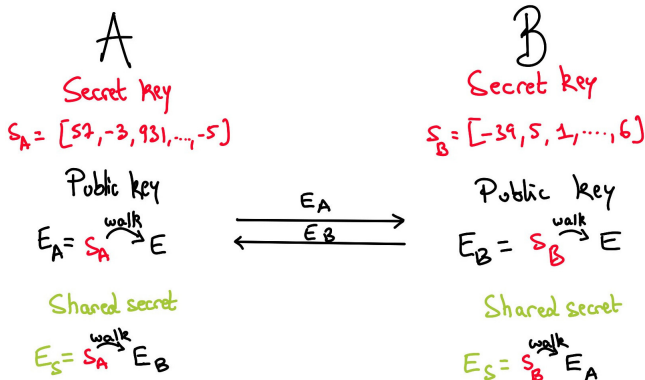 A
Secret key
S_A = [57, -3, 931, ..., -5]
Public key
E_A = S_A walk E
Shared secret
E_S = S_A walk E_B
E_A
E_B
B
Secret key
S_B = [-39, 5, 1, ...., 6]
Public key
E_B = S_B walk E
Shared secret
E_S = S_B walk E_A